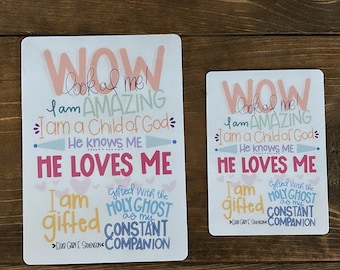 WOW
look at me!
I am AMAZING
I am a Child of God
He knows ME
HE LOVES ME
I am
gifted
Gifted with the
HOLY GHOST
as my
CONSTANT
COMPANION
Elder Gary E. Stevenson
WOW
look at me!
I am AMAZING
I am a Child of God
He knows ME
HE LOVES ME
I am
gifted
Gifted with the
HOLY GHOST
as my
CONSTANT
COMPANION
Elder Gary E. Stevenson